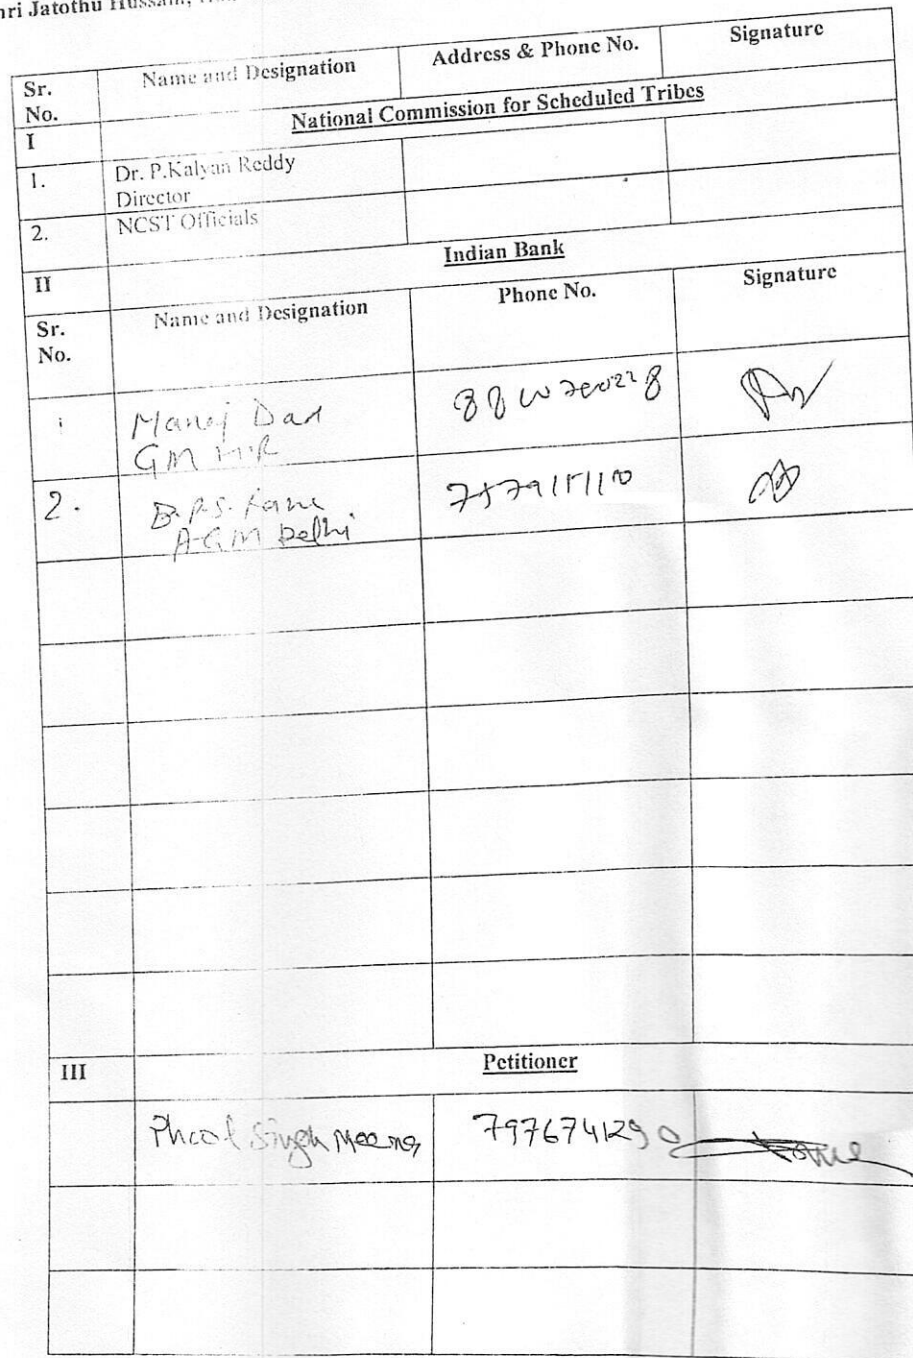 hri Jatothu Hussain,
Sr. No. Name and Designation Address & Phone No. Signature
I National Commission for Scheduled Tribes
1. Dr. P.Kalyan Reddy
Director
2. NCST Officials
II Indian Bank
Sr. No. Name and Designation Phone No. Signature
1 Manoj Das
GM HR
2. B.P.S.
AGM Delhi
III Petitioner
Phool Singh Meena 7976741290